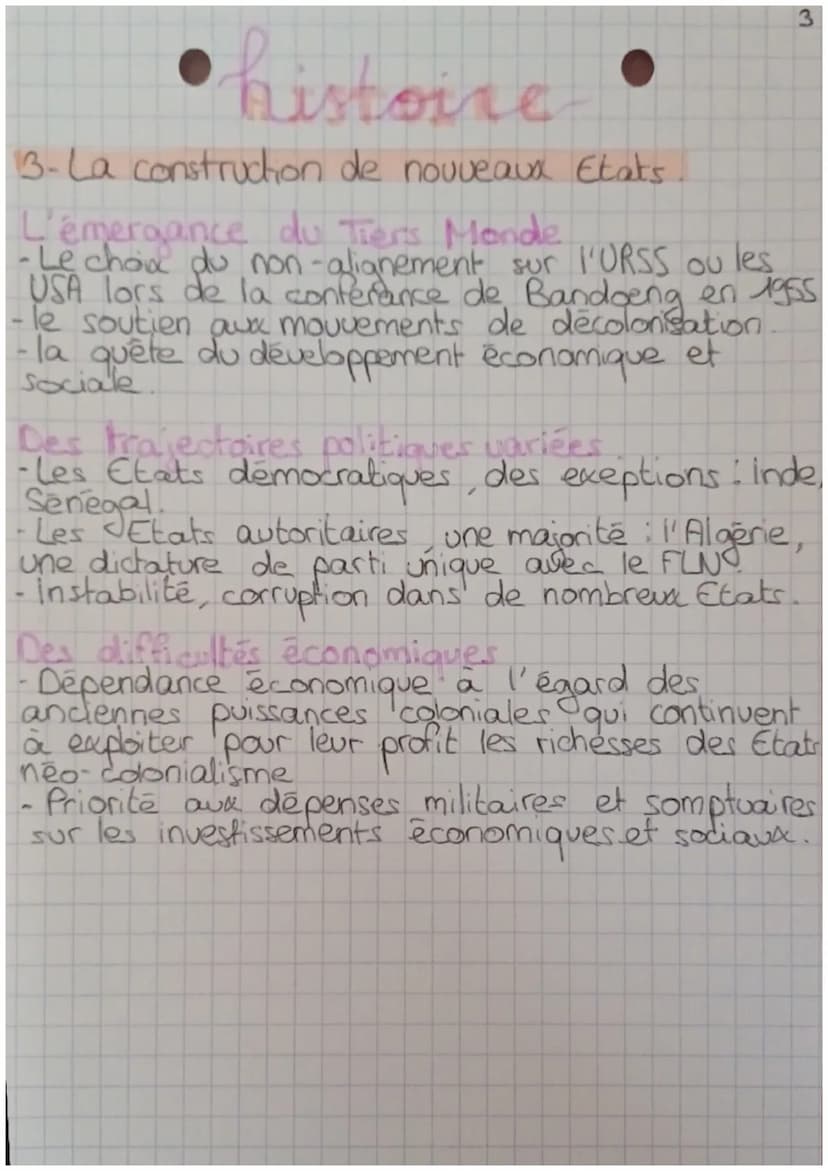 3
histoire
3-La construction de nouveaux Etats.
L'émergance du Tiers Monde
- Le choix du non-alignement sur l'URSS ou les
USA lors de la conférance de Bandoeng en 1955
- le soutien aux mouvements de décolonisation.
- la quête du développement économique et
sociale.
Des trajectoires politiques variées
- Les Etats démocratiques, des exeptions : Inde,
Sénégal.
- Les Etats autoritaires, une majorité : l'Algérie,
une dictature de parti unique avec le FLN.
- instabilité, corruption dans de nombreux Etats.
Des difficultés économiques
- Dépendance économique à l'égard des
anciennes puissances coloniales qui continuent
à exploiter pour leur profit les richesses des Etats
néo-colonialisme
- Priorité aux dépenses militaires et somptuaires
sur les investissements économiques et sociaux.